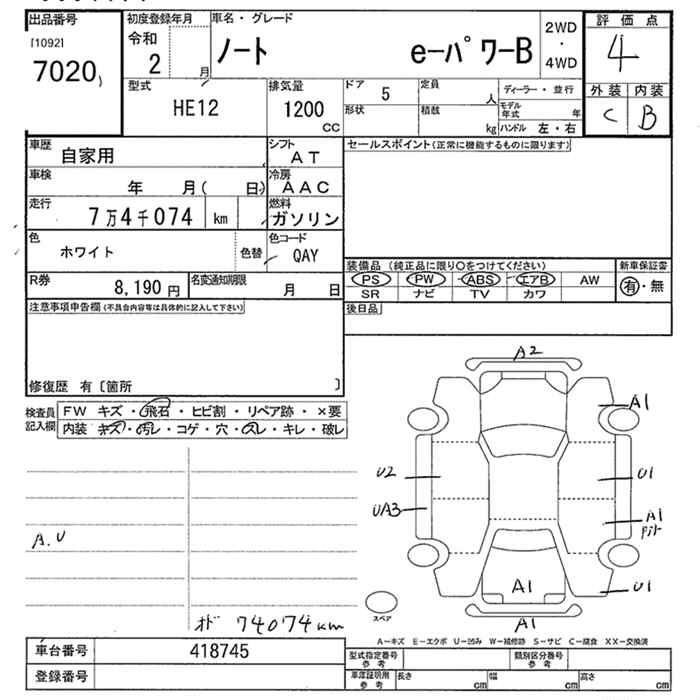 出品番号
[1092]
7020
初度登録年月
令和
2 月
車名・グレード
ノート e-パワーB
2WD
・
4WD
評価点
4
外装 内装
C B
型式
HE12
排気量
1200
CC
ドア 5
形状
定員 人
積載 kg
ディーラー・並行
モデル年式 年
ハンドル 左・右
車歴
自家用
シフト
AT
車検
年 月( 日)
冷房
AAC
走行
7万4千074 km
燃料
ガソリン
色
ホワイト
色替
色コード
QAY
R券
8,190円
名変通知期限
月 日
セールスポイント(正常に機能するものに限ります)
装備品 (純正品に限り○をつけてください)
新車保証書
PS PW ABS エアB AW
SR ナビ TV カワ
有・無
後日品
注意事項申告欄(不具合内容等は具体的に記入して下さい)
修復歴 有〔箇所 〕
検査員
記入欄
FW キズ・飛石・ヒビ割・リペア跡・×要
内装 キズ・汚レ・コゲ・穴・スレ・キレ・破レ
A.U
オド 74074km
A2
A1
U2
U1
UA3
A1
U1
A1
A1
スペア
A-キズ E-エクボ U-凹み W-補修跡 S-サビ C-腐食 XX-交換済
車台番号
418745
登録番号
型式指定番号
参考
類別区分番号
参考
車庫証明用
参考
長さ cm
幅 cm
高さ cm